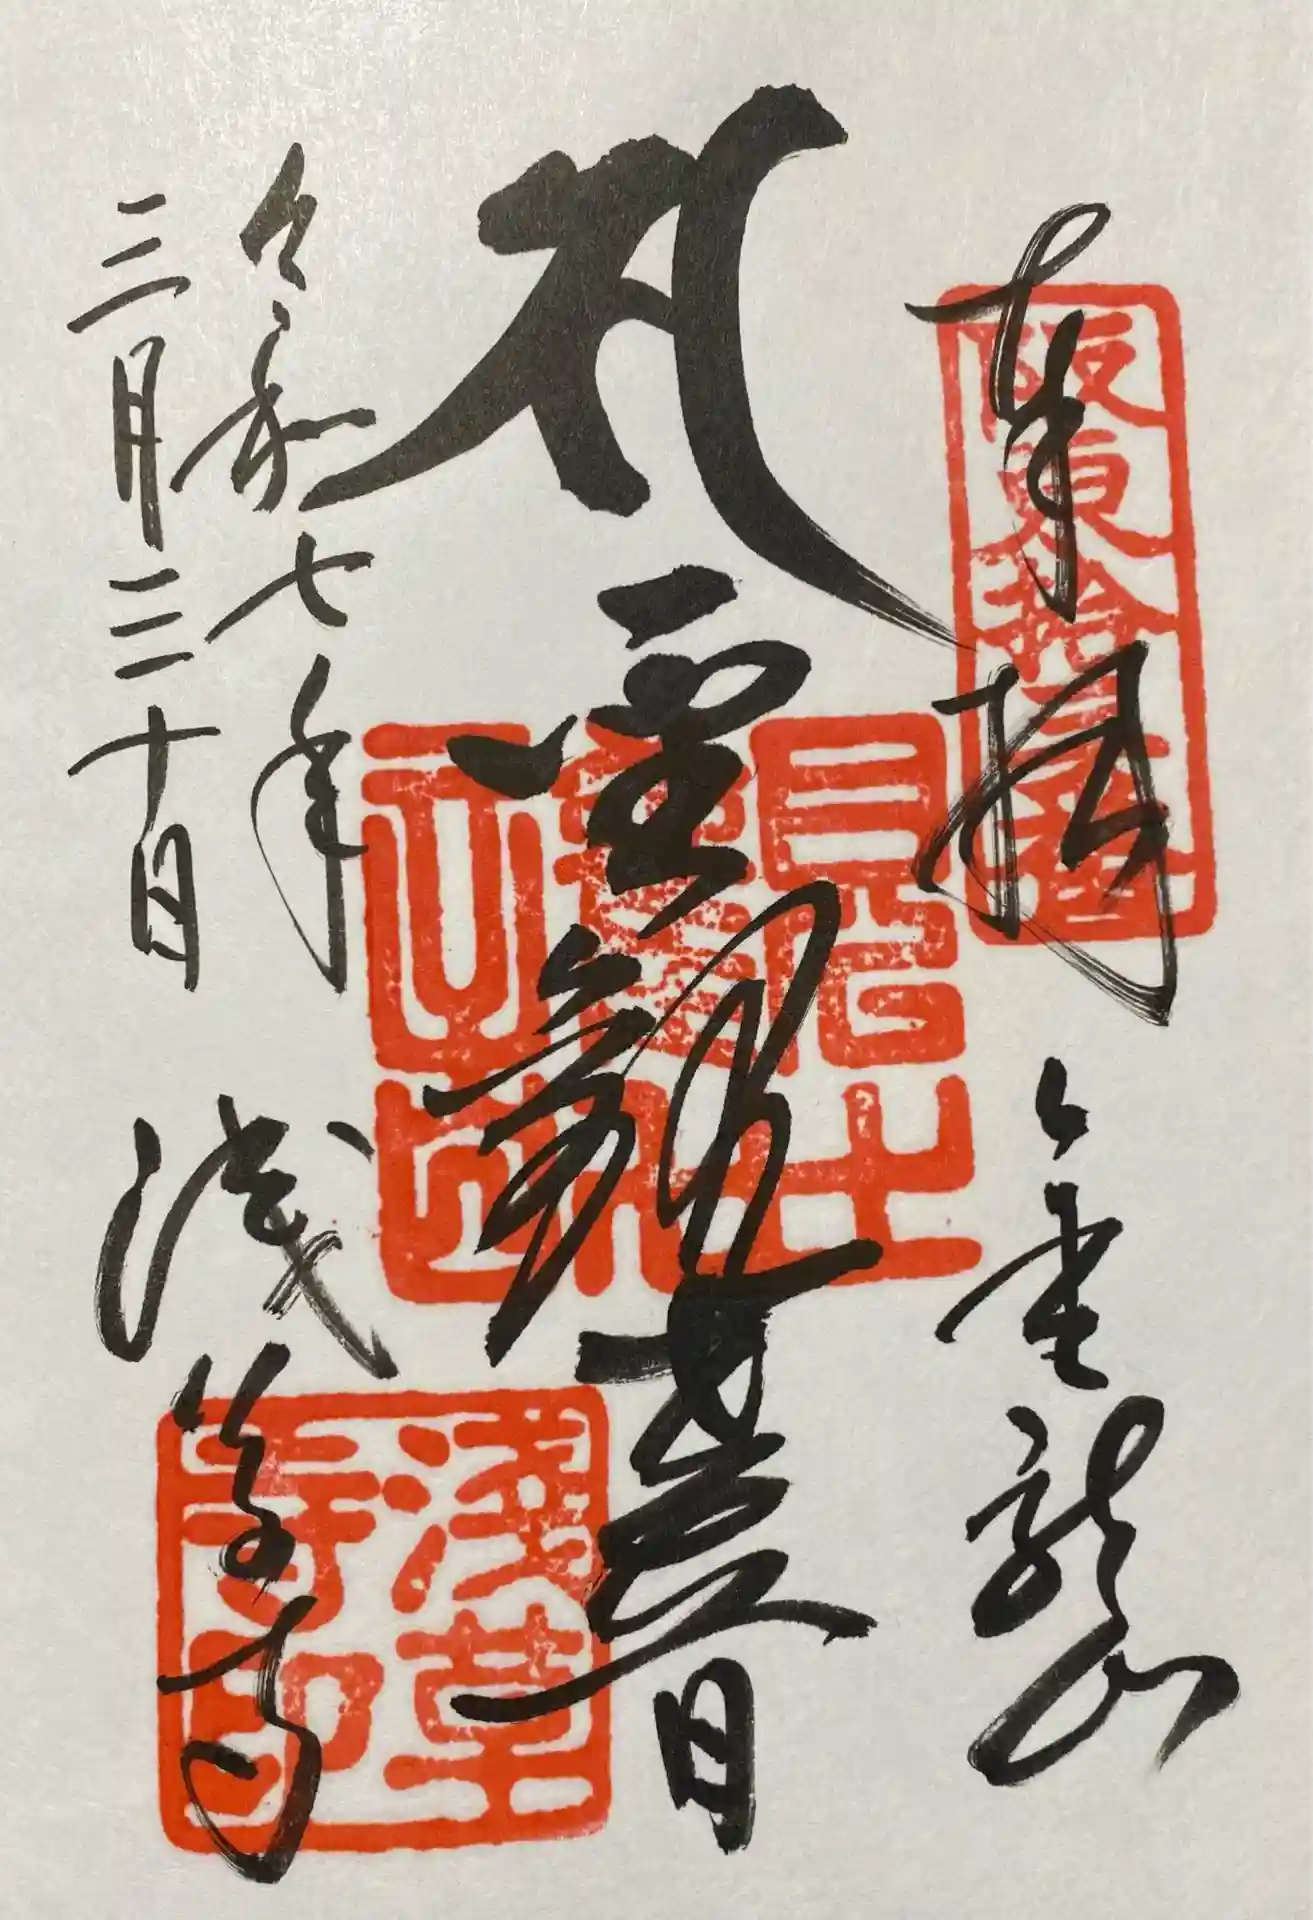 奉拝　金龍山
阪東拾三番
聖観世音
令和七年
三月三十日
浅草寺
淺草寺印